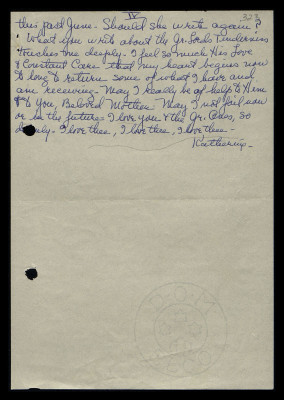 IV
323
this past June. Should she write again?
What you write about the Gr. Lord's Tenderness
touches me deeply. I feel so much His Love
& Constant Care that my heart begins now
to long to return some of what I have and
am receiving. May I really be of help to Him
& to you, Beloved Mother. May I not fail now
or in the future. I love you & the Gr. Ones, so
dearly. I love thee, I love thee, I love thee.
Katherine.